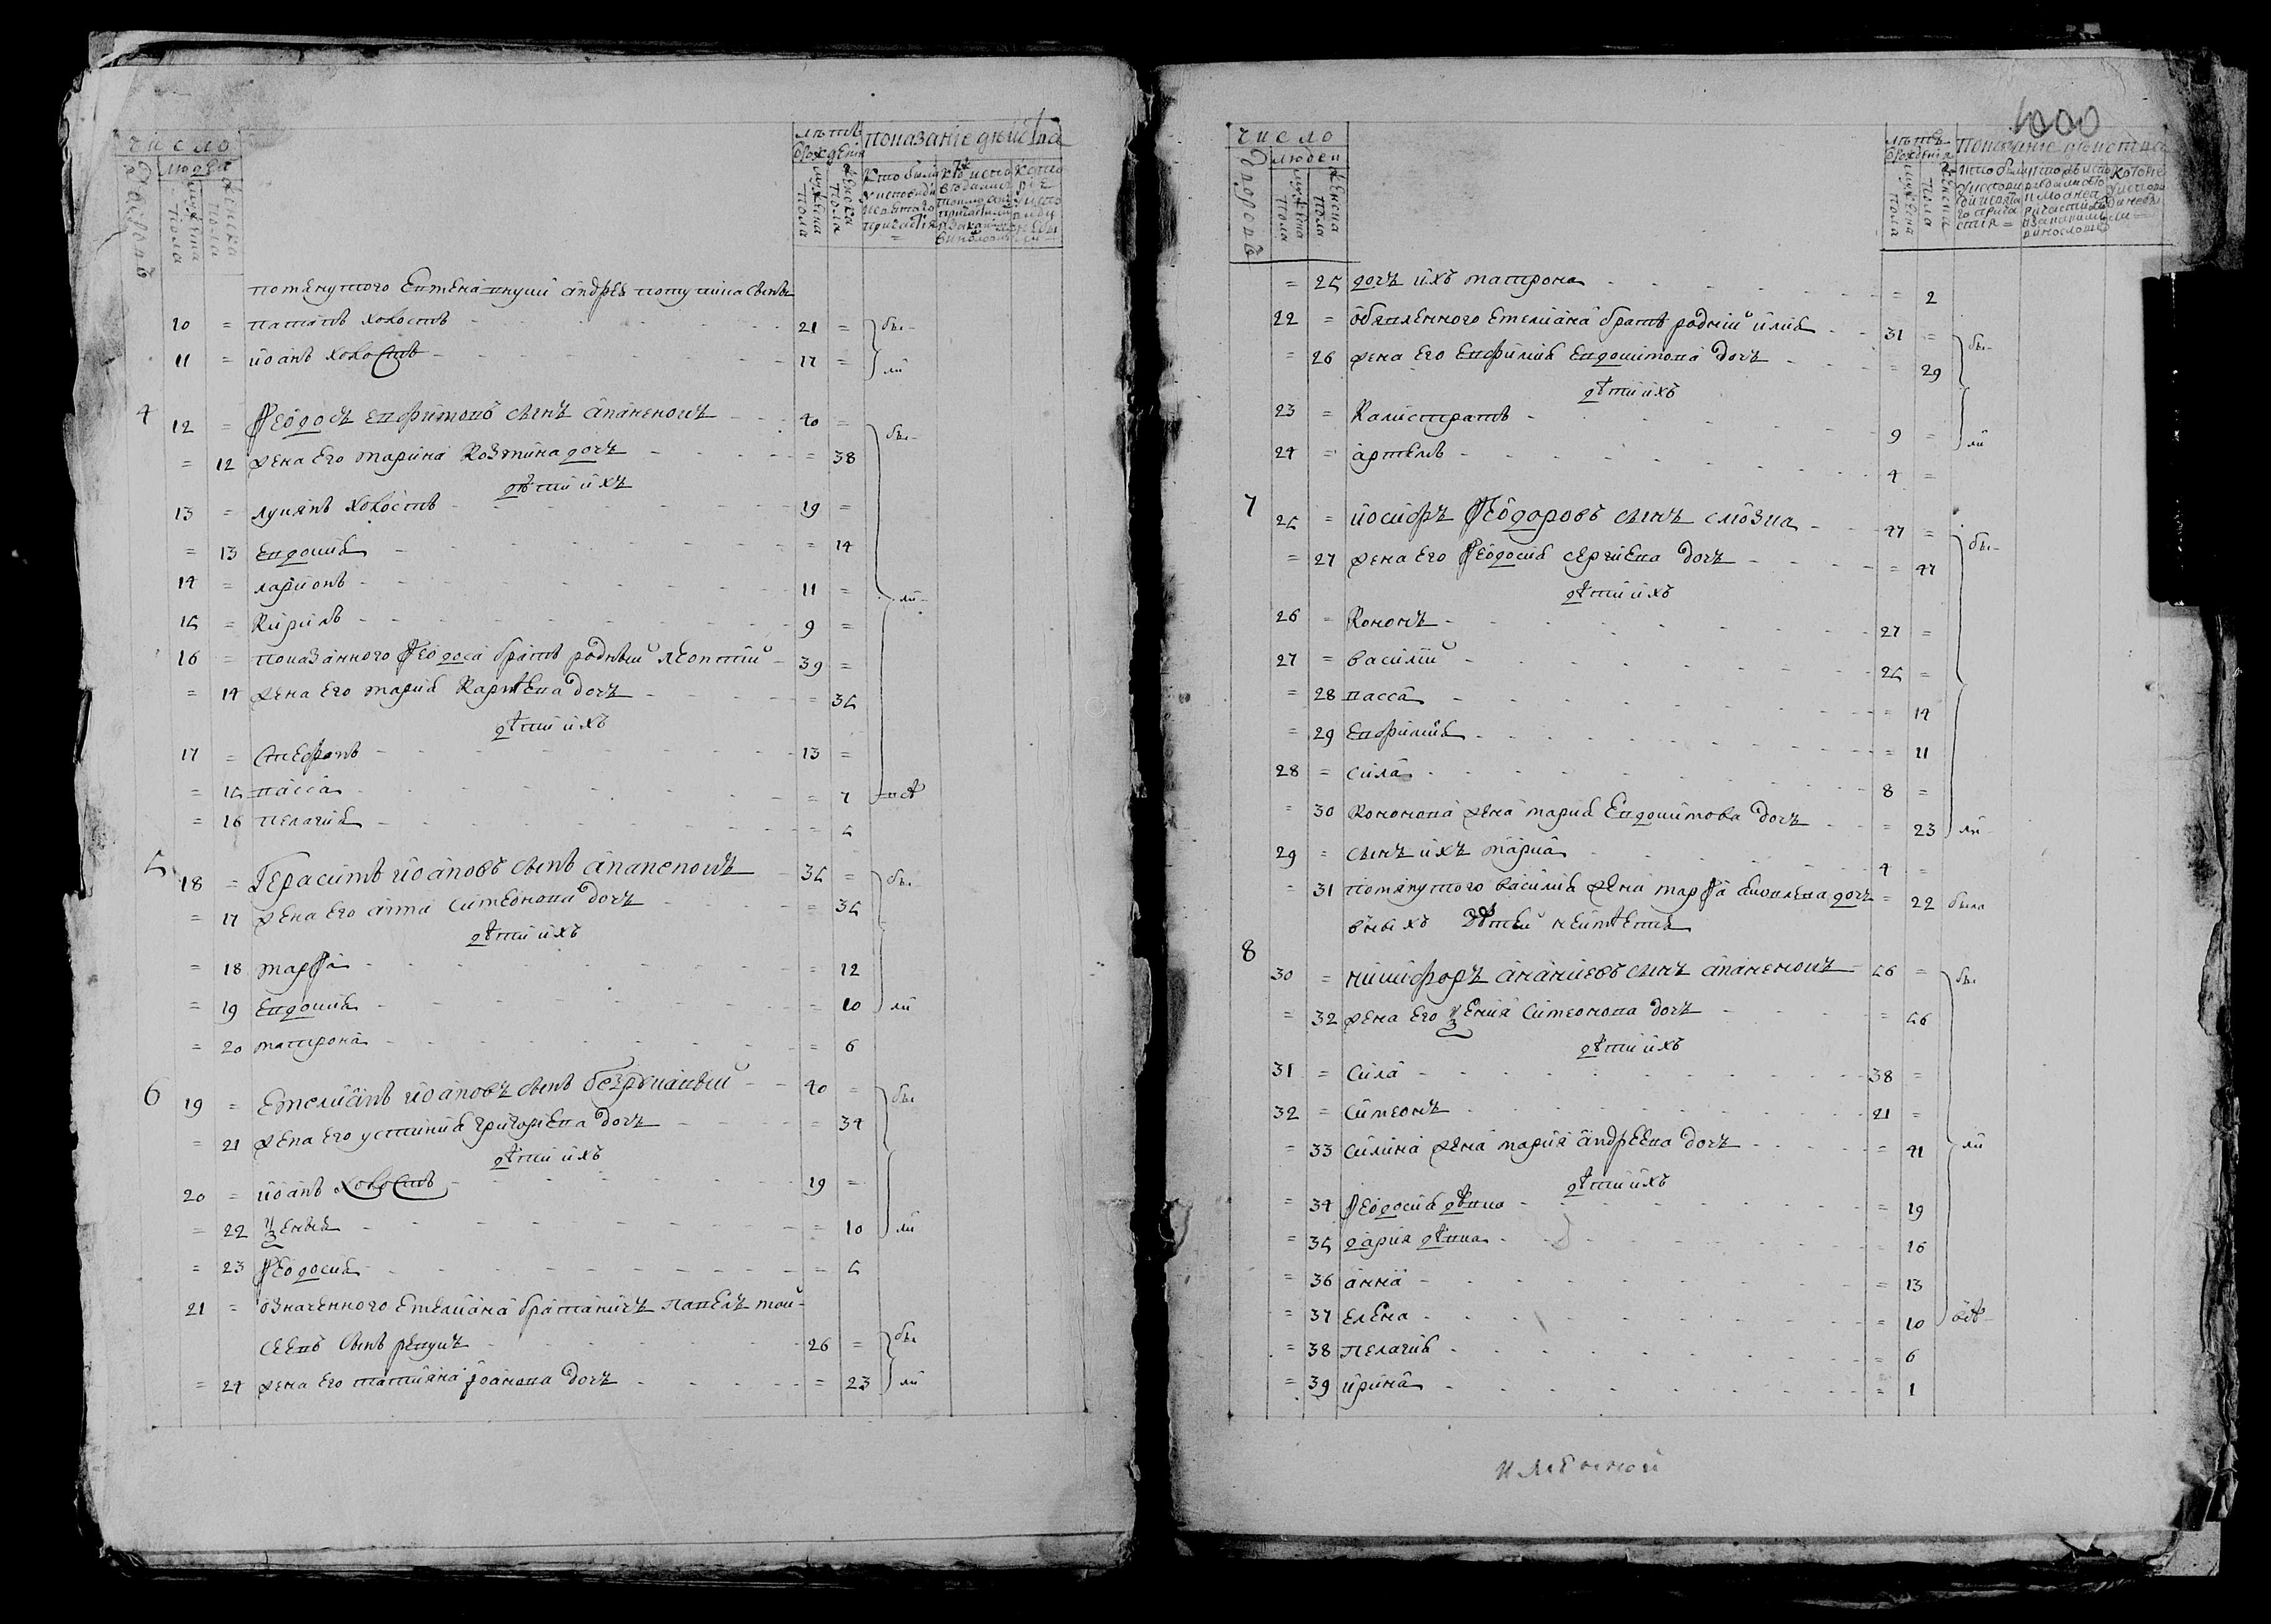 число
людей
мужеска пола
женска пола
лѣтъ
от рождения
мужеска пола
женска пола
показание действа
помянутого Евмена внуки андрея потупина сыны
10 = потапъ холостъ 21 = бы-
11 = иоанъ холостъ 17 = ли
4 12 = Ѳеодосъ евфимовъ сынъ апаненокъ 40 = бы-
= 12 жена его марина козмина дочь = 38
дѣти ихъ
13 = лукянъ холостъ 19 =
= 13 евдокия = 14
14 = ларионъ 11 = ли-
15 = кирилъ 9 =
16 = показанного Ѳеодоса братъ родный леонтий 39 =
= 14 жена его мария карпѣева дочь = 35
дѣти ихъ
17 = стефанъ 13 =
= 15 васса = 7
= 16 пелагия = 5
5 18 = герасимъ иоановъ сынъ апаненокъ 35 = бы
= 17 жена его анна симеонова дочь = 35
дѣти ихъ
= 18 марѳа = 12
= 19 евдокия = 10 ли
= 20 матрона = 6
6 19 = емелианъ иоановъ сынъ безрукавый 40 = бы
= 21 жена его устиния григориева дочь = 34
дѣти ихъ
20 = иоанъ холостъ 19 =
= 22 ѯения = 10 ли
= 23 Ѳеодосия = 5
21 = означенного емелиана братаничъ павелъ мои-
сеевъ сынъ репухъ 26 = бы
= 24 жена его татияна иоанова дочь = 23 ли
1000
число
людеи
мужеска пола
женска пола
лѣтъ
от рождения
мужеска пола
женска пола
показание действа
= 25 дочь ихъ матрона = 2
22 = объявленного емелиана братъ родний илия 31 = бы-
= 26 жена его евфимия евдокимова дочь = 29
дѣти ихъ
23 = калистратъ 9 = ли
24 = артемъ 4 =
7 25 = иосифъ Ѳеодоровъ сынъ слюзка 47 = бы-
= 27 жена его Ѳеодосия сергиева дочь = 47
дѣти ихъ
26 = кононъ 27 =
27 = василий 25 =
= 28 васса = 14
= 29 евфимия = 11
28 = сила 8 =
= 30 кононова жена мария евдокимова дочь = 23 ли-
29 = сынъ ихъ 4 =
= 31 помянутого василия жена марѳа дочь = 22 была
внихъ дѣтей неимѣется
8 30 = никифоръ ананиевъ сынъ апаненокъ 56 = бы
= 32 жена его ѯения симеонова дочь = 56
дѣти ихъ
31 = сила 38 =
32 = симеонъ 21 =
= 33 силина жена мария андреева дочь = 41 ли
дѣти ихъ
= 34 Ѳеодосия дѣвка = 19
= 35 дария дѣвка = 16
= 36 анна = 13
= 37 елена = 10
= 38 пелагия = 6
= 39 ирина = 1